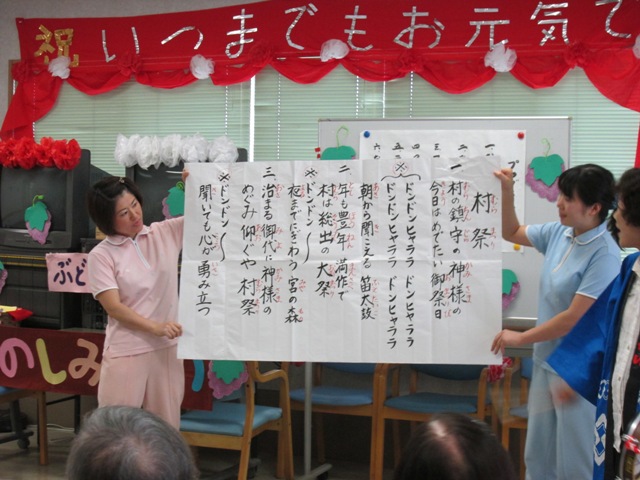 祝 いつまでもお元気で
村祭
一 村の鎮守の神様の
今日はめでたい御祭日
※ドンドンヒャララ ドンヒャララ
ドンドンヒャララ ドンヒャララ
朝から聞こえる笛太鼓
二 年も豊年満作で
村は総出の大祭
※ドンドン
夜までにぎわう宮の森
三 治まる御代に神様の
めぐみ仰ぐや村祭
※ドンドン
聞いても心が勇み立つ
ぶど
のしみ